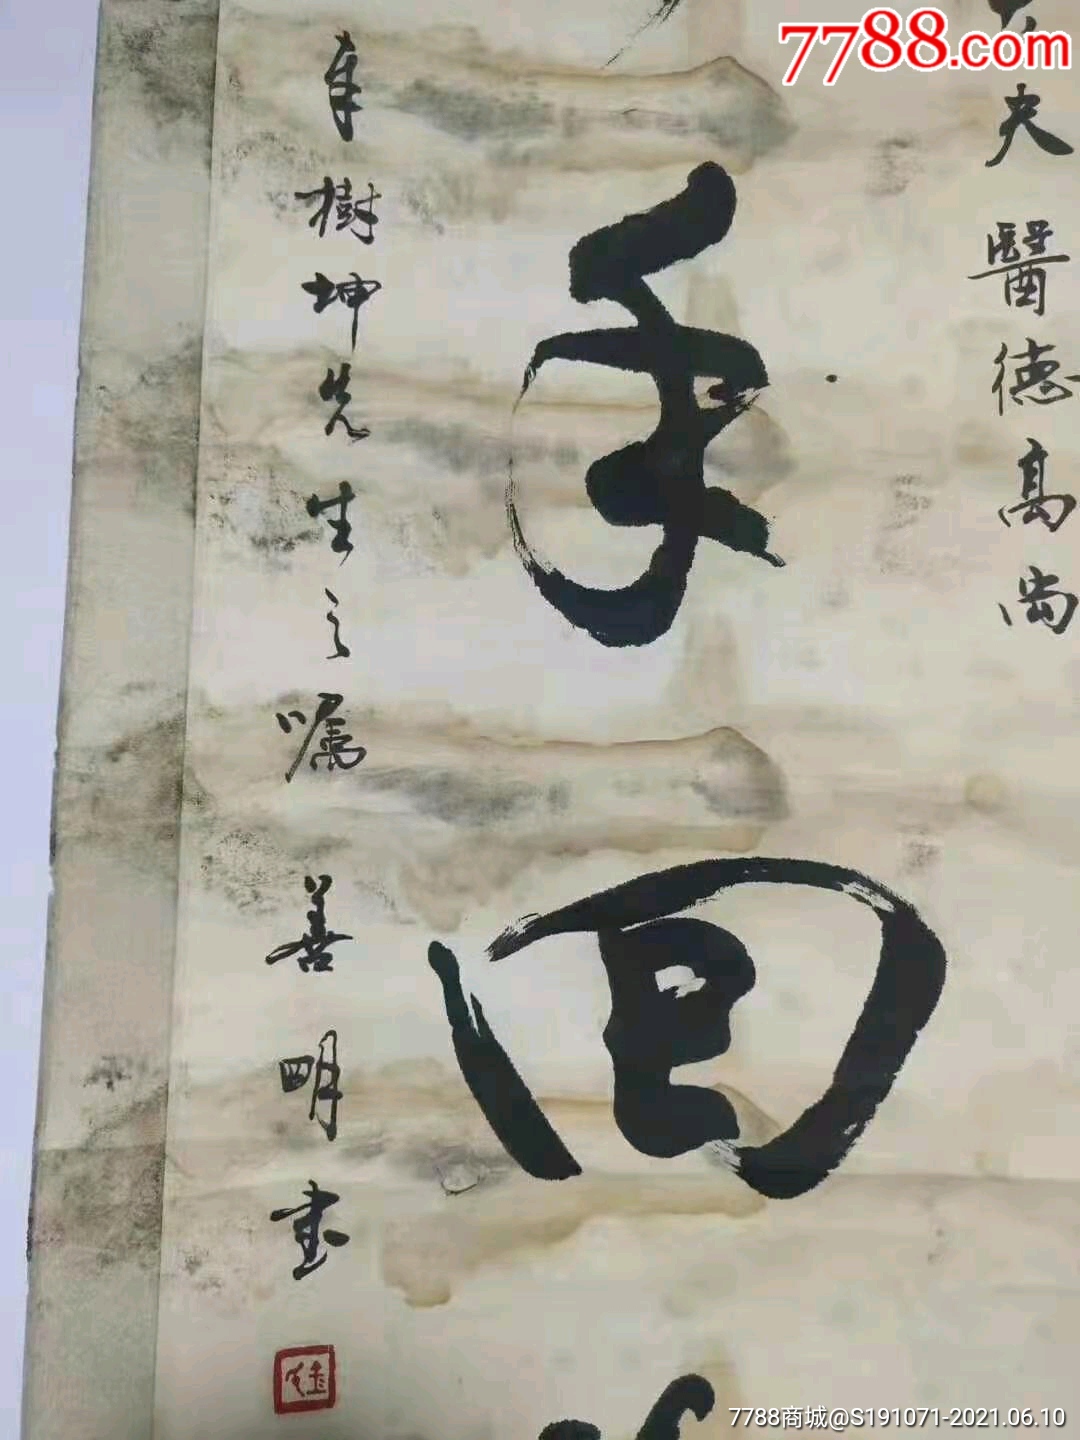 7788.com
夫醫德高尚
手回
樹坤先生之嘱 善明書
7788商城@S191071-2021.06.10